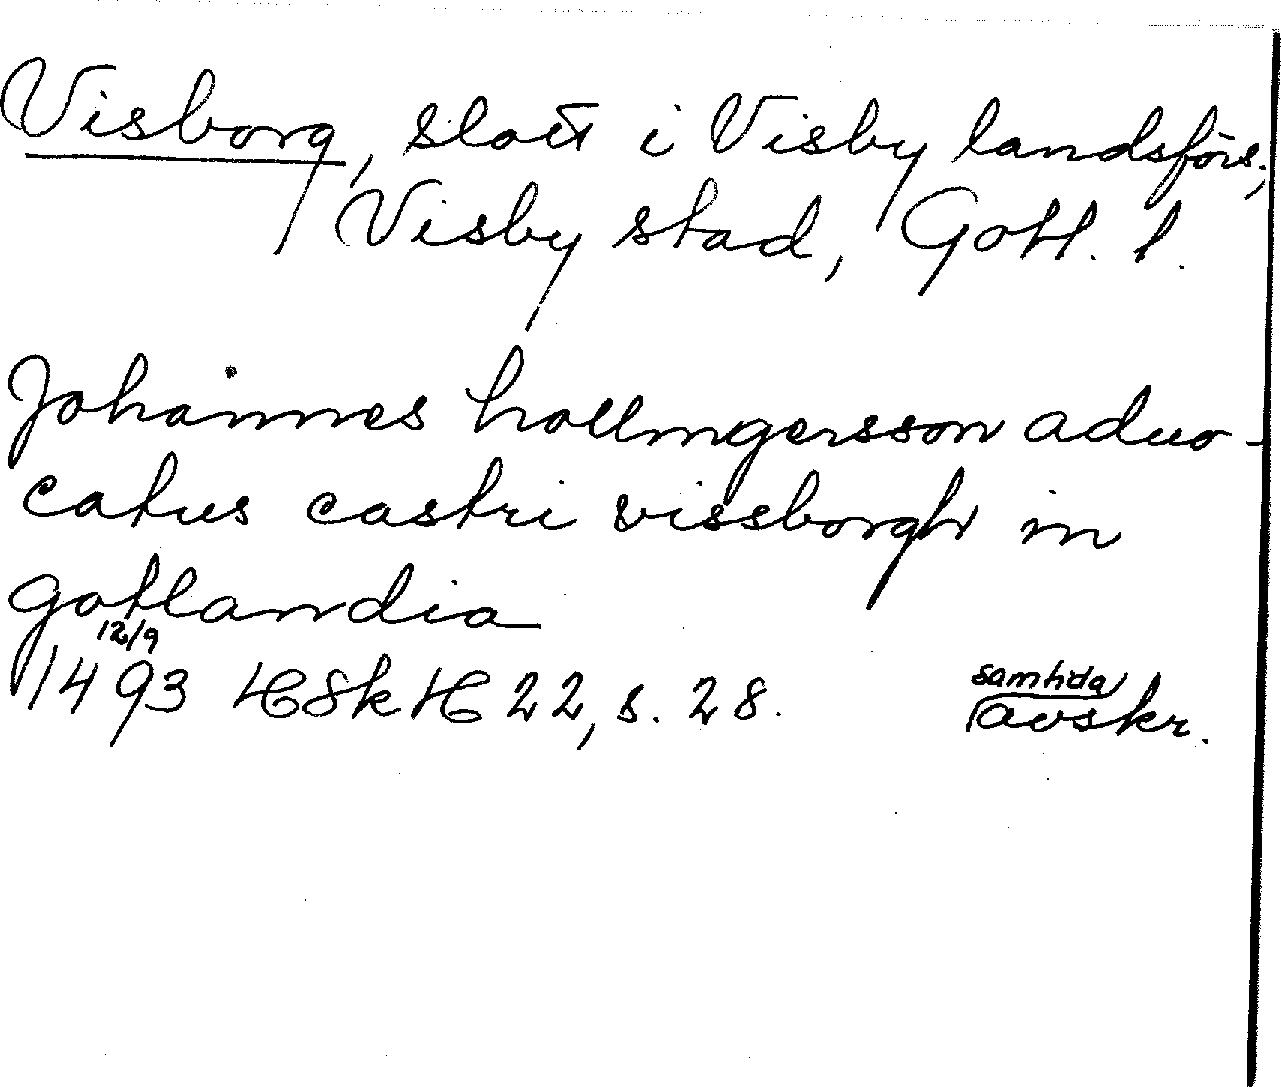 Visborg, slott i Visby landsförs.;
Visby stad, Gotl. l.
Johannes hollmgersson aduo-
catus castri vissborgh in
gotlandia
12/9
1493 HSkH 22, s. 28.
samtida
avskr.